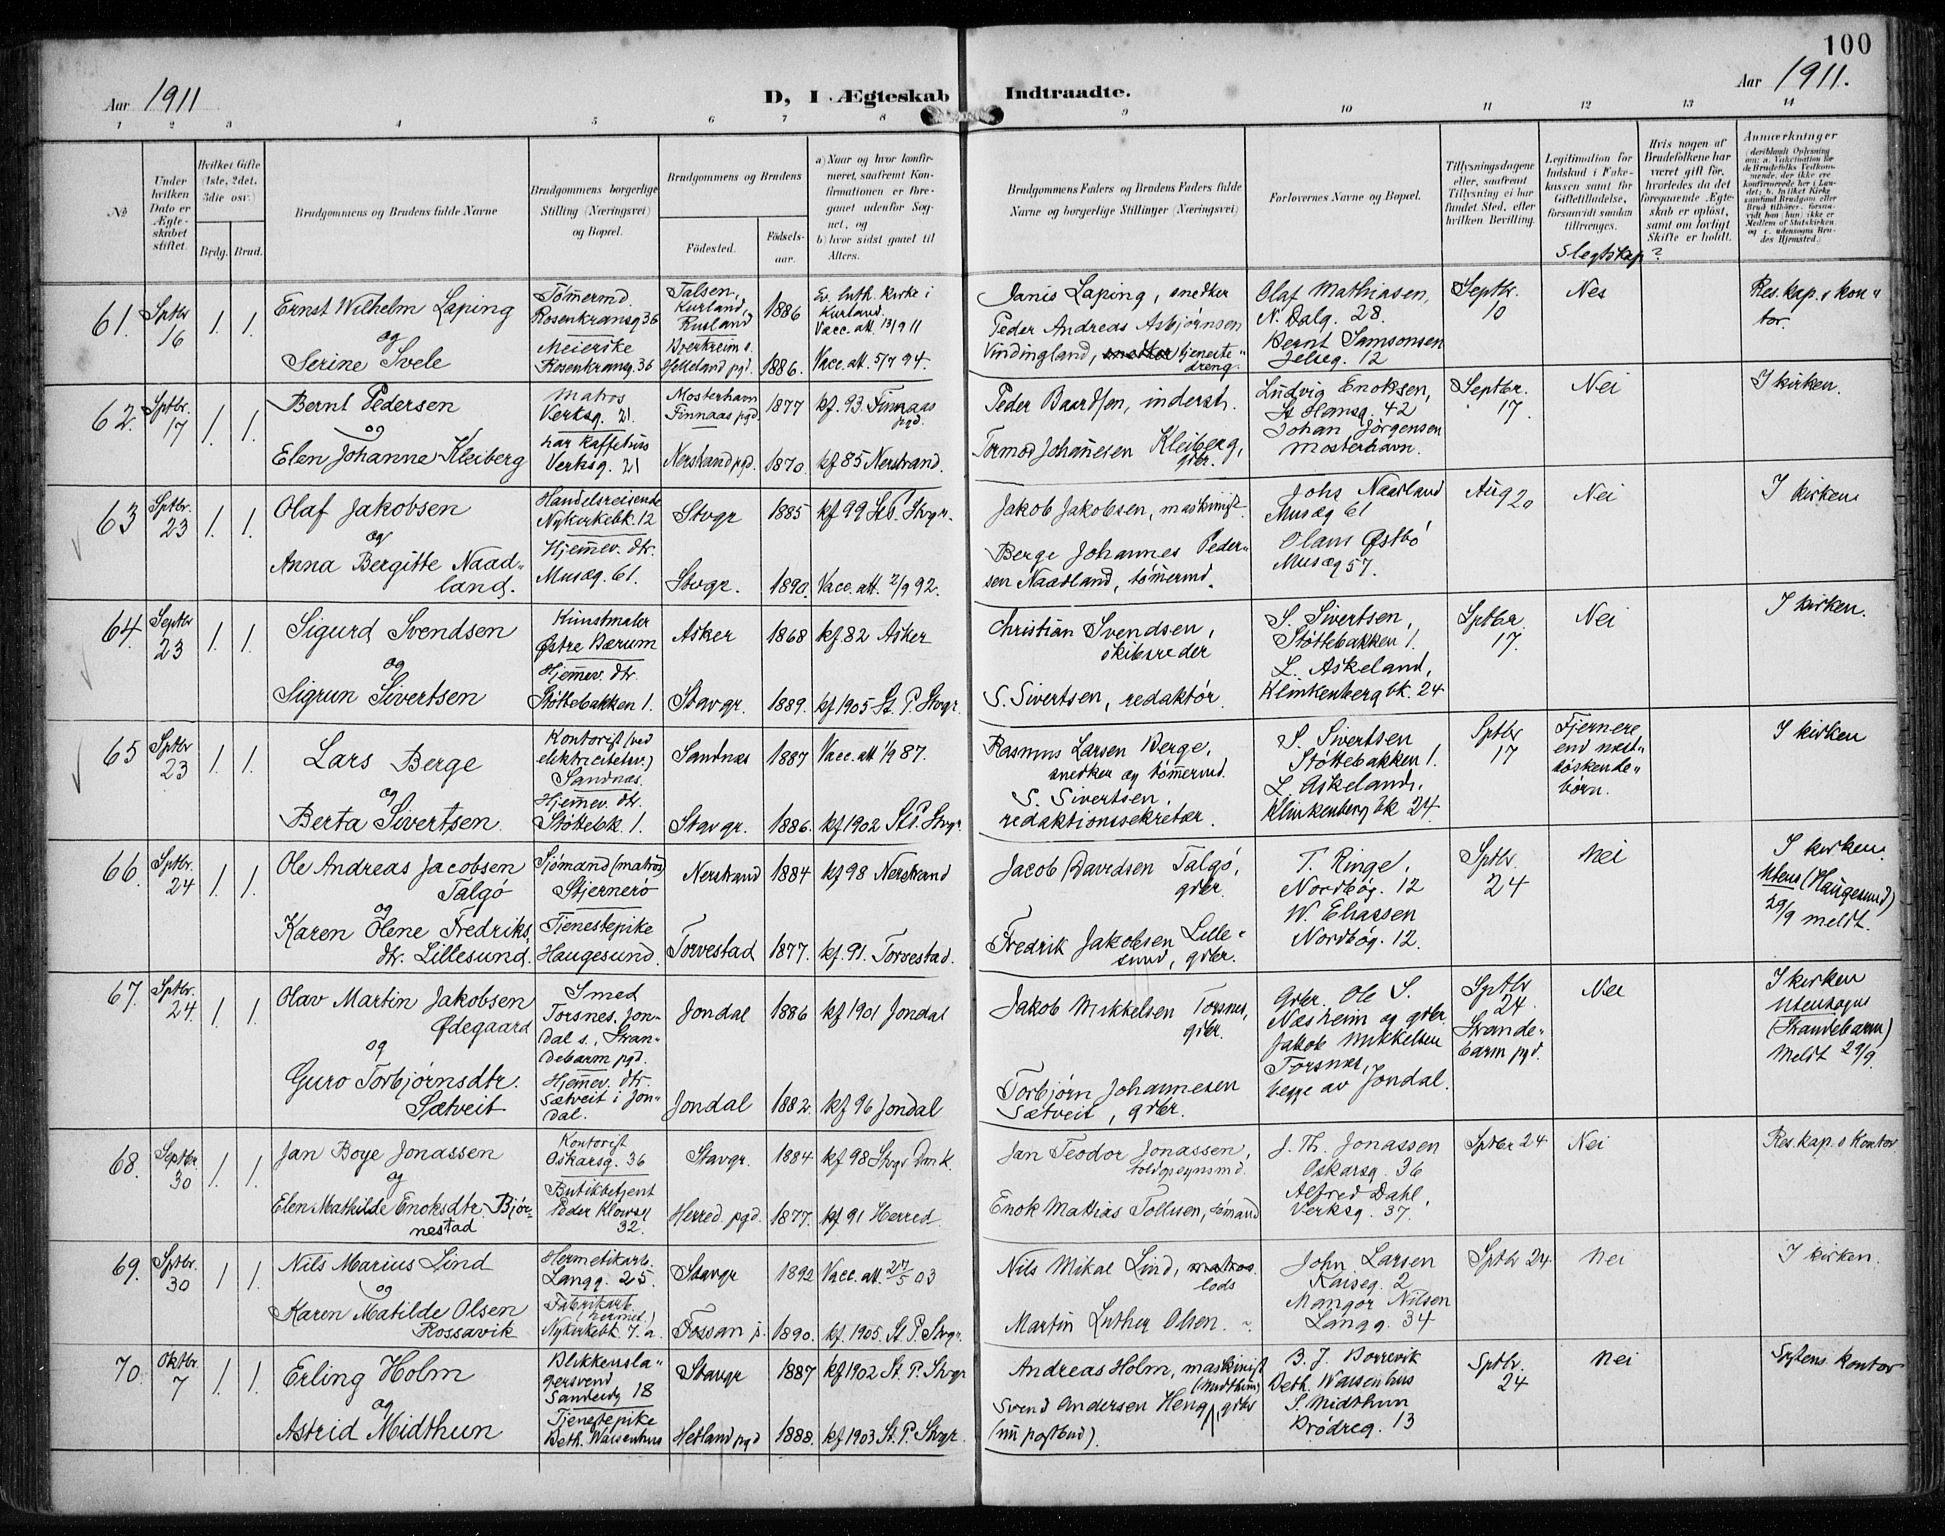 100
Aar 1911
D, I Ægteskab Indtraadte.
Aar 1911.
1 2 3 4 5 6 7 8 9 10 11 12 13 14
№
Under hvilken Dato er Ægteskabet stiftet.
Hvilket Gifte (1ste, 2det, 3die osv.)
Brdg. Brud.
Brudgommens og Brudens fulde Navne
Brudgommens borgerlige Stilling (Næringsvei) og Bopæl.
Brudgommens og Brudens
Fødested.
Fødsels-aar.
a) Naar og hvor konfirmeret, saafremt Konfirmationen er foregaaet udenfor Sognet, og
b) hvor sidst gaaet til Alters.
Brudgommens Faders og Brudens Faders fulde Navne og borgerlige Stillinger (Næringsvei)
Forlovernes Navne og Bopæl.
Tillysningsdagene eller, saafremt Tillysning ei har fundet Sted, efter hvilken Bevilling.
Legitimation for Indskud i Enkekassen samt for Giftetilladelse, forsaavidt saadan tiltrænges.
Slegtskap?
Hvis nogen af Brudefolkene har været gift før, hvorledes da det foregaaende Ægteskab er opløst, samt om lovligt Skifte er holdt.
Anmærkninger
61. Sptbr 16 1. 1. Ernst Wilhelm Laping
og
Serine Svele
Tømermd. Rosenkransg 36
Meierske Rosenkransg. 36
Talsen, Kurland, Rusland 1886 Ev. luth. Kirke i Kurland. Vacc. att. 13/9 11
Bjerkreim s. Helleland pgd. 1886. Vacc. att. 5/7 94.
Janis Laping, snedker
Peder Andreas Asbjørnsen Vindingland, snedker tjeneste-dreng.
Olaf Mathiasen, N. Dalg. 28.
Bernt Samsonsen Jelseg. 12
Septbr. 10
Nei
Res. kap.s kontor.
62. Sptbr. 17 1. 1. Bernt Pedersen
og
Elen Johanne Kleiberg
Matros Verksg. 21.
har kaffehus Verksg. 21
Mosterhavn Finnaas pgd 1877 kf. 93. Finnaas pgd.
Nerstrand pgd. 1870. kf 85 Nerstrand.
Peder Baardsen, inderst.
Tormod Johanesen Kleiberg, gbr.
Ludvig Enoksen, St Hansg. 42
Johan Jørgensen Mosterhavn.
Septbr. 17.
Nei
I kirken.
63 Sptbr. 23 1. 1. Olaf Jakobsen
og
Anna Bergitte Naadland.
Handelsreisende Nykirkebk. 12
Hjemmev. dtr. Musæg. 61.
Stvgr 1885 kf 99 St P. Stvgr.
Stvgr. 1890. Vacc. att. 2/9 92.
Jakob Jakobsen, maskinist.
Berge Johannes Pedersen Naadland, tømermd.
Johs Naadland Musæg 61
Olaus Østbø Musæg 57.
Aug 20
Nei
I kirken
64. Septbr 23 1. 1. Sigurd Svendsen
og
Sigrun Sivertsen
Kunstmaler Østre Bærum
Hjemmev. dtr. Støttebakken 1.
Asker 1868 kf 82 Asker
Stavgr. 1889. kf 1905 St. P. Stvgr.
Christian Svendsen, skibsreder
S. Sivertsen, redaktør.
S. Sivertsen, Støttebakken 1.
L. Askeland, Klinkenberg bk. 24
Sptbr. 17.
Nei
I kirken.
65 Sptbr 23 1. 1. Lars Berge
og
Berta Sivertsen.
Kontorist (ved elektricitetsv.) Sandnæs.
Hjemmev. dtr. Støttebk. 1.
Sandnæs 1887 Vacc. att 1/9 87.
Stavgr. 1886. kf 1902 St P. Stvgr.
Rasmus Larsen Berge, snedker og tømermd.
S. Sivertsen, redaktionssekretær.
S. Sivertsen Støttebakken 1.
L. Askeland, Klinkenberg bk 24.
Sptbr 17
Fjernere end næst-søskende-børn.
I kirken
66. Sptbr. 24 1. 1. Ole Andreas Jacobsen Talgø
og
Karen Olene Fredriks. dtr. Lillesund.
Sjømand (matros) Stjernerø
Tjenestepike Haugesund.
Nerstrand 1884 kf 98 Nerstrand
Torvestad 1877. kf. 91. Torvestad.
Jacob Davidsen Talgø, gbr.
Fredrik Jakobsen Lillesund, gbr.
T. Ringe, Nordbøg. 12
W. Eliassen Nordbøg. 12.
Sptbr. 24
Nei
I kirken.
Utens (Haugesund) 29/9 meldt.
67. Sptbr. 24. 1. 1. Olav Martin Jakobsen Ødegaard
og
Guro Torbjørnsdtr. Sætveit
Smed Torsnes, Jondal s., Strandebarm pgd.
Hjemmev. dtr. Sætveit i Jondal.
Jondal 1886 kf 1901 Jondal
Jondal 1882. kf 96 Jondal
Jakob Mikkelsen Torsnes, gbr.
Torbjørn Johannesen Sætveit, gbr.
Gbr. Ole S. Næsheim og gbr. Jakob Mikkelsen Torsnæs, begge av Jondal.
Sptbr 24. Strandebarm pgd.
Nei
I kirken
Utensogns (Strandebarm) Meldt 29/9.
68. Septbr. 30 1. 1. Jan Boye Jonassen
og
Elen Mathilde Enoksdtr Bjørnestad
Kontorist Oskarsg. 36
Butikbetjent Peder Klowsg 32.
Stavgr. 1884 kf 98 Stvgr Domk.
Herred pgd. 1877. kf 91 Herred.
Jan Teodor Jonassen, toldopsynsmd.
Enok Mathias Tollisen, sømand
J. Th. Jonassen Oskarsg. 36
Alfred Dahl, Verksg. 37.
Sptbr 24
Nei
Res. kap.s Kontor
69. Sptbr. 30 1 1. Nils Marius Lind
og
Karen Matilde Olsen Rossavik
Hermetikarb. Langg. 25.
Fabrikarb. (hermet.) Nykirkebk. 7.a.
Stavgr 1892 Vacc. att. 27/5 03
Fossan p. 1890. kf. 1905. St P. Stvgr.
Nils Mikal Lind, matros. lods
Martin Luther Olsen.
John Larsen Karseg. 2
Mangor Nilsen Langg. 34
Sptbr 24
Nei
I kirken.
70. Oktbr. 7 1. 1. Erling Holm
og
Astrid Midthun
Blikkenslagersvend Sandeidg 18
Tjenestepike Beth. Waisenhus
Stavgr 1887 kf 1902 St. P. Stvgr
Hetland pgd 1888. kf 1903 St. P. Stvgr.
Andreas Holm, maskinist
Svend Andersen Heng (Midthun), gbr (nu postbud).
B. J. Borrevik Beth. Waisenhus
S. Midthun Brødreg. 13
Sptbr. 24
Nei
Sogprns kontor